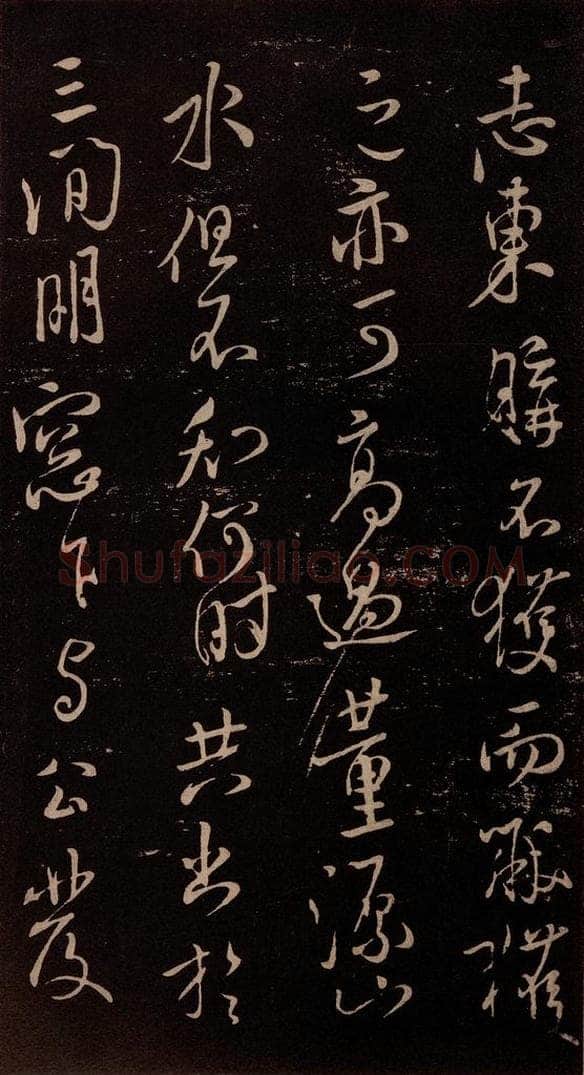 志東購不獲而獲
之亦可高過董源山
水但不知何時共出於
三間明窗下与公發
Shufaziliao.COM